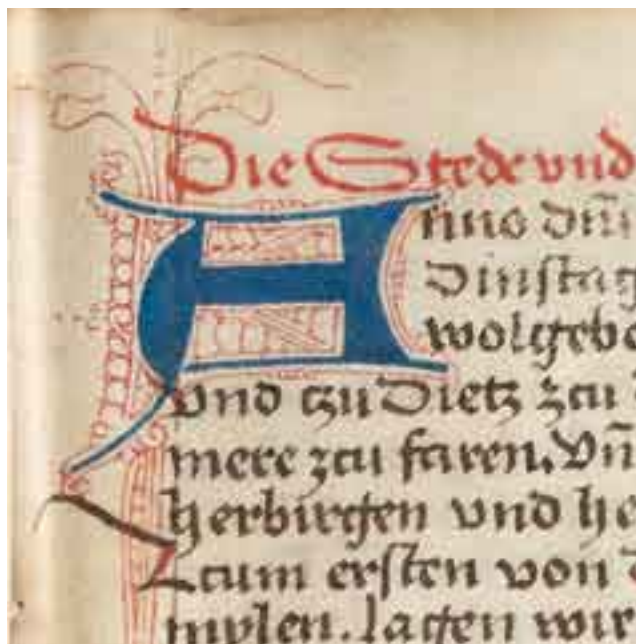 Die Stede vnd
Anno dm̄
dinstag
wolgebo
vnd czu Dietz zcu
mere zcu faren. Vn̄
herbirgen vnd he
Zcum ersten von d
mylen. lagen wir